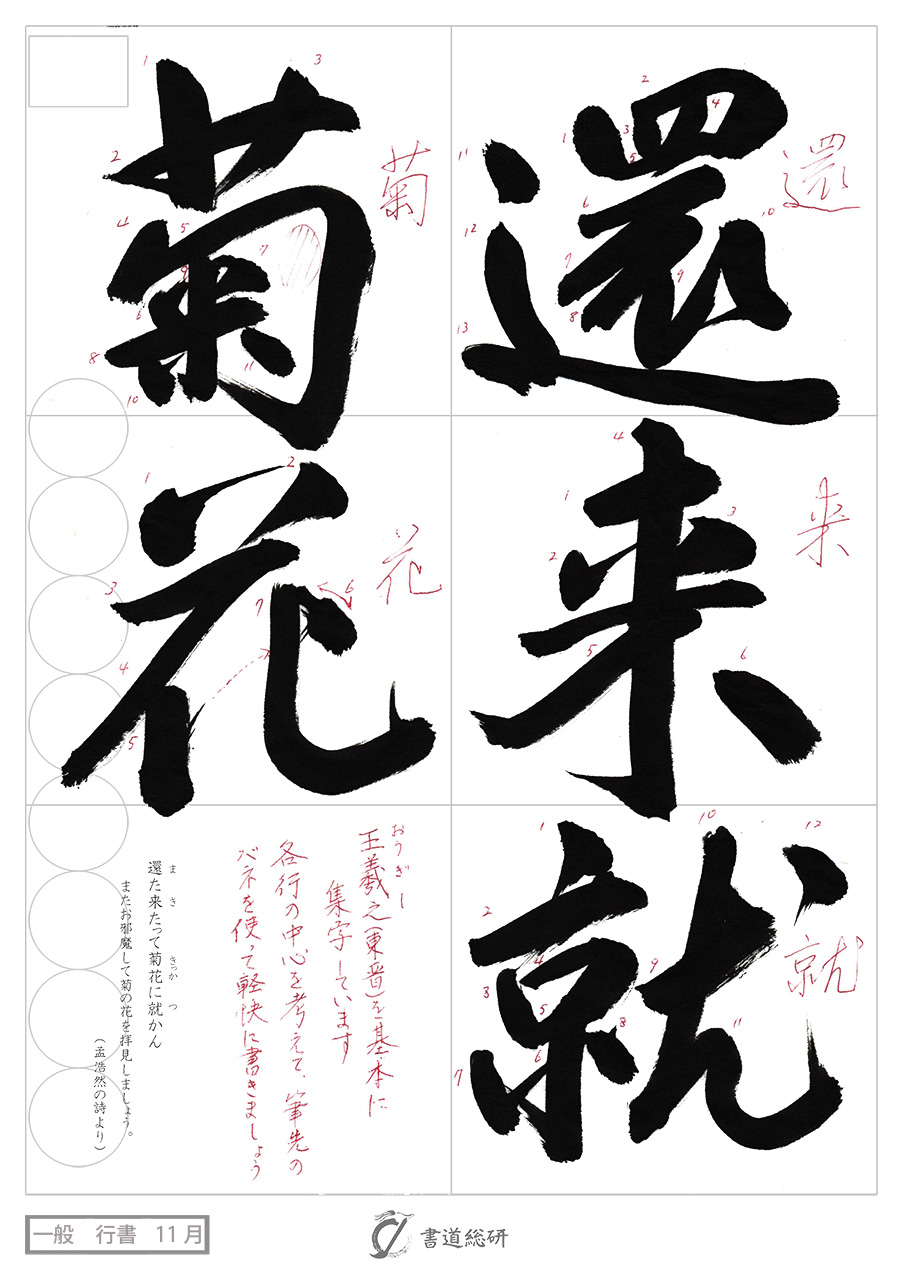 還来就
菊花
還
来
就
菊
花
王羲之(東晋)を基本に
おうぎし
集字しています
各行の中心を考えて、筆先の
バネを使って軽快に書きましょう
還た来たって菊花に就かん
ま き きっか つ
またお邪魔して菊の花を拝見しましょう。
(孟浩然の詩より)
一般 行書 11月
書道総研